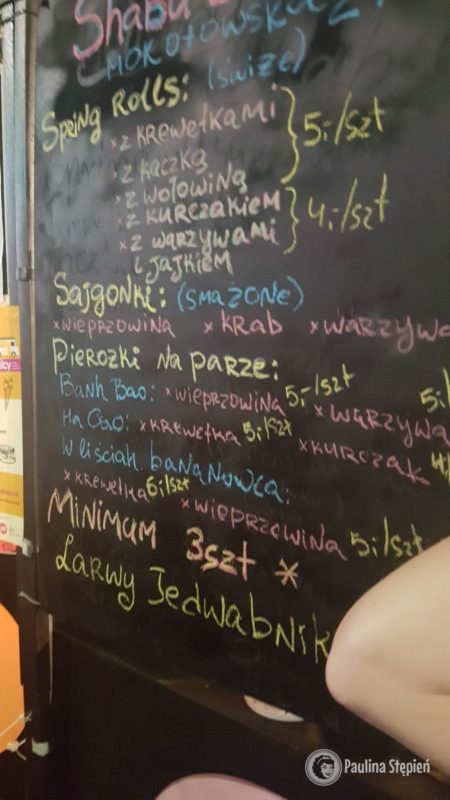 Shabu
MOKOTOWSKA 27
Spring Rolls: (świeże)
x z krewetkami
x z kaczką } 5,-/szt
x z wołowiną
x z kurczakiem } 4,-/szt
x z warzywami
i jajkiem
Sajgonki: (smażone)
x wieprzowina x krab x warzywa
Pierożki na parze:
Banh Bao: x wieprzowina 5,-/szt x warzywa 5,-
Ha Cao: x krewetka 5,-/szt x kurczak 4,-
w liściah bananowca:
x krewetka 6,-/szt x wieprzowina 5,-/szt
Minimum 3szt *
Larwy Jedwabnik
Paulina Stępień